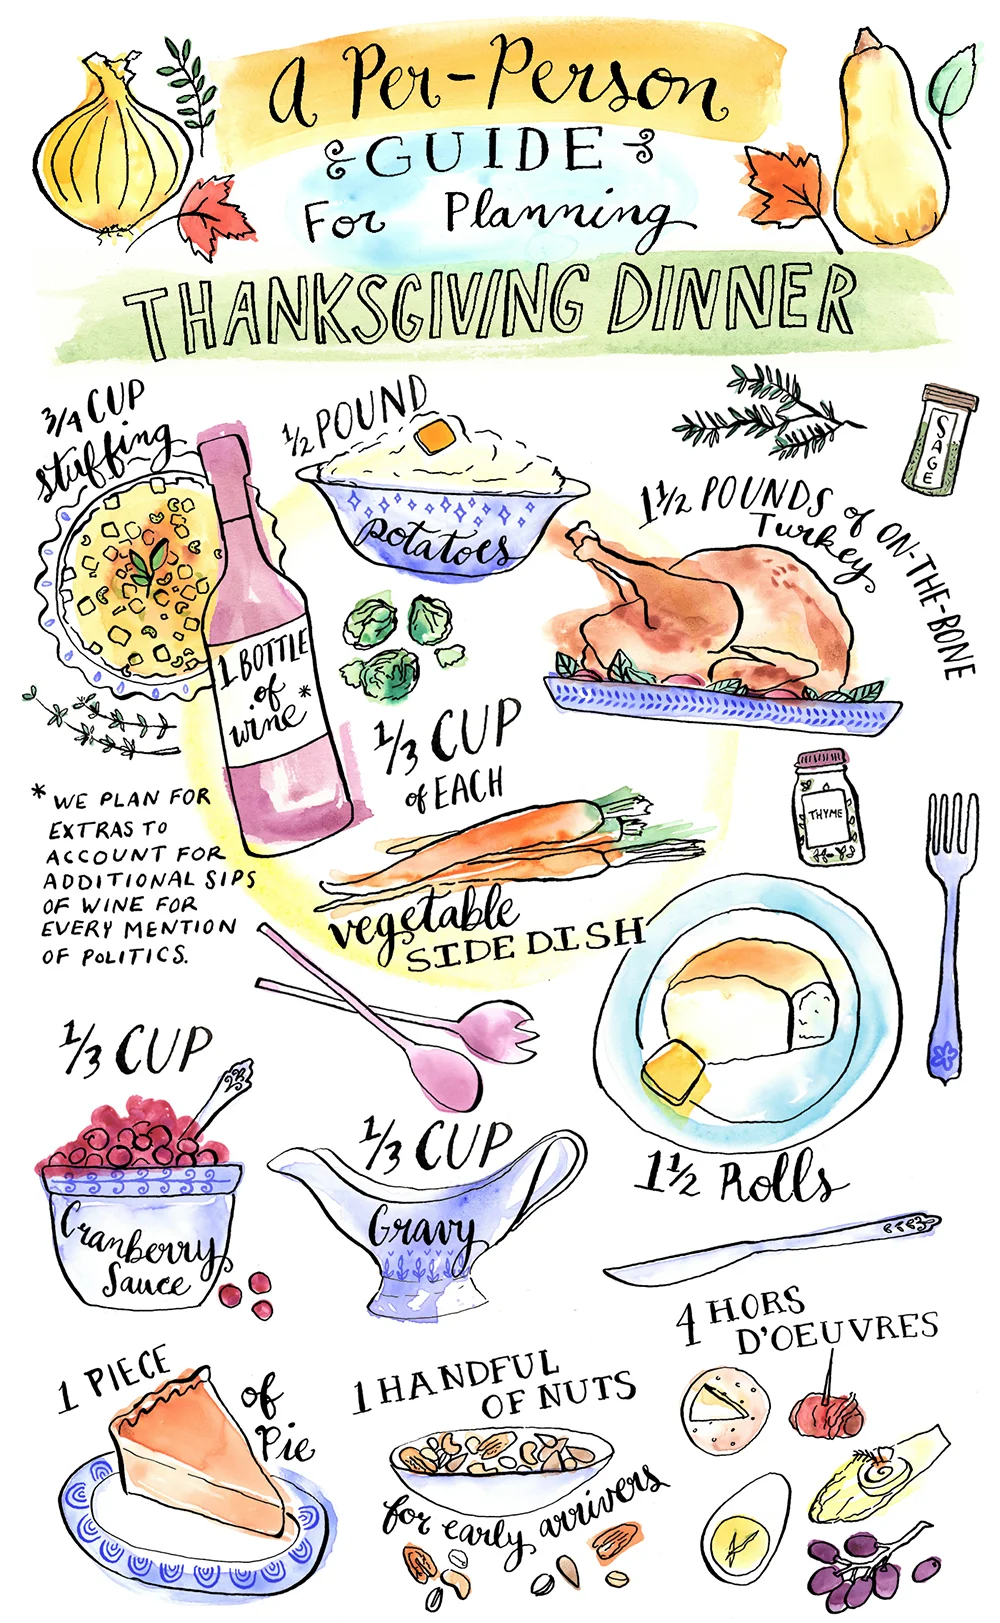 A Per-Person
GUIDE
For Planning
THANKSGIVING DINNER
3/4 CUP
stuffing
1/2 POUND
Potatoes
1 1/2 POUNDS of ON-THE-BONE
Turkey
SAGE
1 BOTTLE
of
wine*
1/3 CUP
of EACH
vegetable
SIDE DISH
THYME
* WE PLAN FOR
EXTRAS TO
ACCOUNT FOR
ADDITIONAL SIPS
OF WINE FOR
EVERY MENTION
OF POLITICS.
1/3 CUP
Cranberry
Sauce
1/3 CUP
Gravy
1 1/2 Rolls
4 HORS
D'OEUVRES
1 PIECE
of
Pie
1 HANDFUL
OF NUTS
for early arrivers